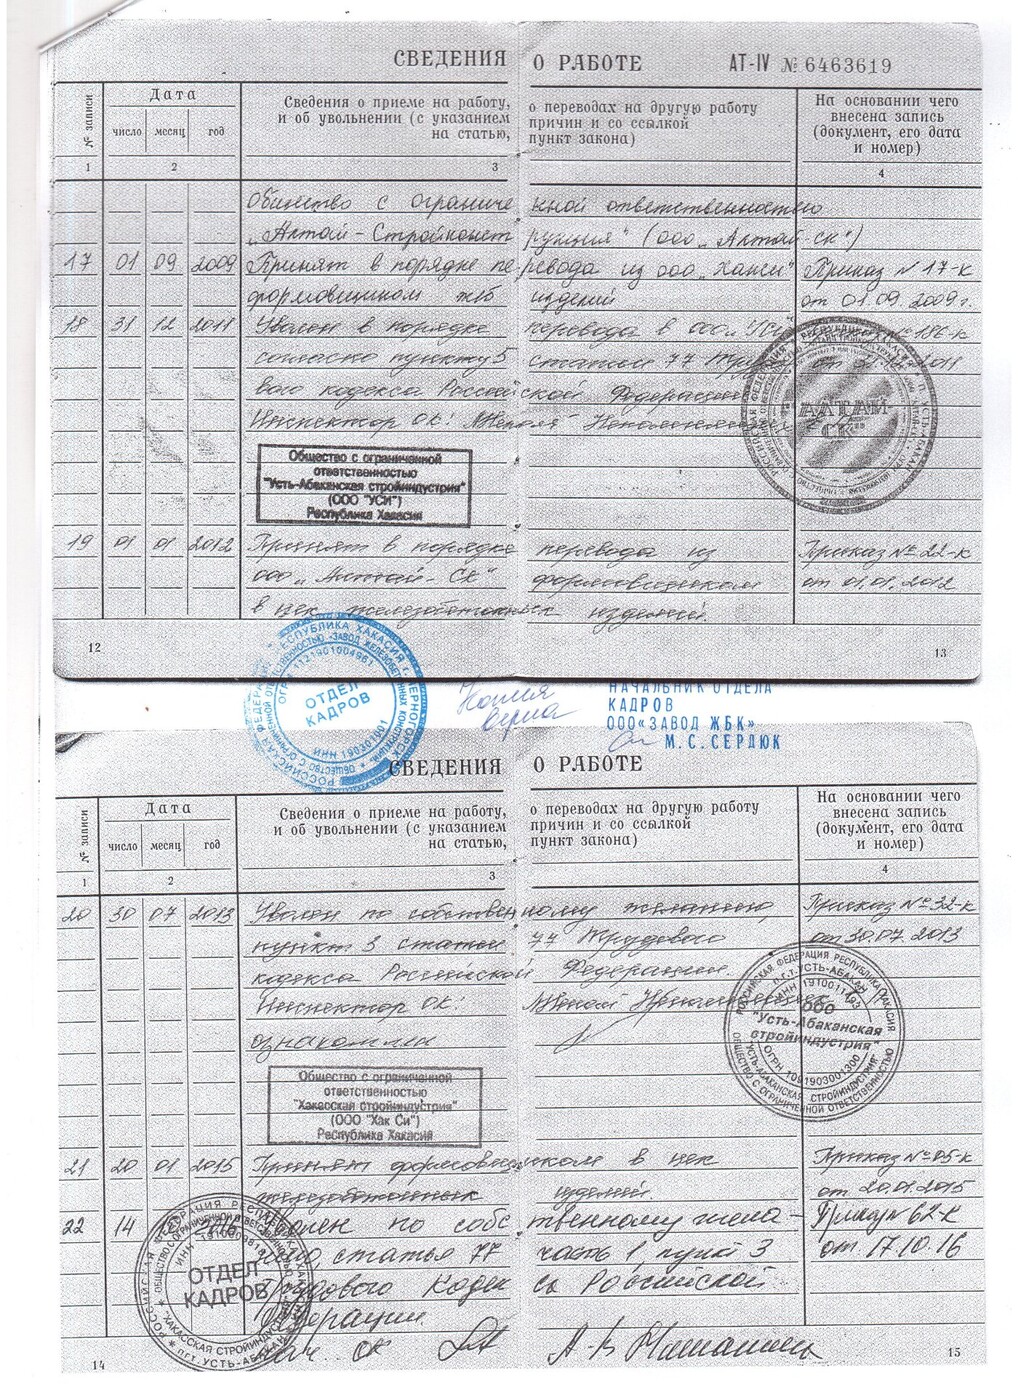 СВЕДЕНИЯ О РАБОТЕ AT-IV № 6463619
№ записи
Дата
число месяц год
Сведения о приеме на работу, о переводах на другую работу
и об увольнении (с указанием причин и со ссылкой
на статью, пункт закона)
На основании чего
внесена запись
(документ, его дата
и номер)
1 2 3 4
Общество с ограниченной ответственностью
„Алтай-Стройконструкция" (ООО „Алтай-СК")
17 01 09 2009 Принят в порядке перевода из ООО „Ханси" Приказ № 17-к
формовщиком жб изделий от 01.09.2009г.
18 31 12 2011 Уволен в порядке перевода в ООО „УСИ" № 186-к
согласно пункту 5 статьи 77 2011
вого кодекса Российской Федерации
Инспектор ОК:
Общество с ограниченной
ответственностью
"Усть-Абаканская стройиндустрия"
(ООО "УСИ")
Республика Хакасия
19 01 01 2012 Принят в порядке перевода из Приказ № 22-к
ООО „Алтай-СК" формовщиком от 01.01.2012
в цех железобетонных изделий.
12 13
ОТДЕЛ
КАДРОВ
Копия
верна
НАЧАЛЬНИК ОТДЕЛА
КАДРОВ
ООО«ЗАВОД ЖБК»
М.С.СЕРДЮК
СВЕДЕНИЯ О РАБОТЕ
№ записи
Дата
число месяц год
Сведения о приеме на работу, о переводах на другую работу
и об увольнении (с указанием причин и со ссылкой
на статью, пункт закона)
На основании чего
внесена запись
(документ, его дата
и номер)
1 2 3 4
20 30 07 2013 Уволен по собственному желанию, Приказ № 32-к
пункт 3 статьи 77 Трудового от 30.07.2013
кодекса Российской Федерации.
Инспектор ОК:
ознакомлен
ООО
"Усть-Абаканская
стройиндустрия"
Общество с ограниченной
ответственностью
"Хакасской стройиндустрия"
(ООО "Хак Си")
Республика Хакасия
21 20 01 2015 Принят формовщиком в цех Приказ № 05-к
железобетонных изделий. от 20.01.2015
22 14 Уволен по собственному жела- Приказ № 62-к
нию, статья 77 часть 1, пункт 3 от 17.10.16
Трудового Кодекса Российской
Федерации.
Нач. ОК
ОТДЕЛ
КАДРОВ
14 15